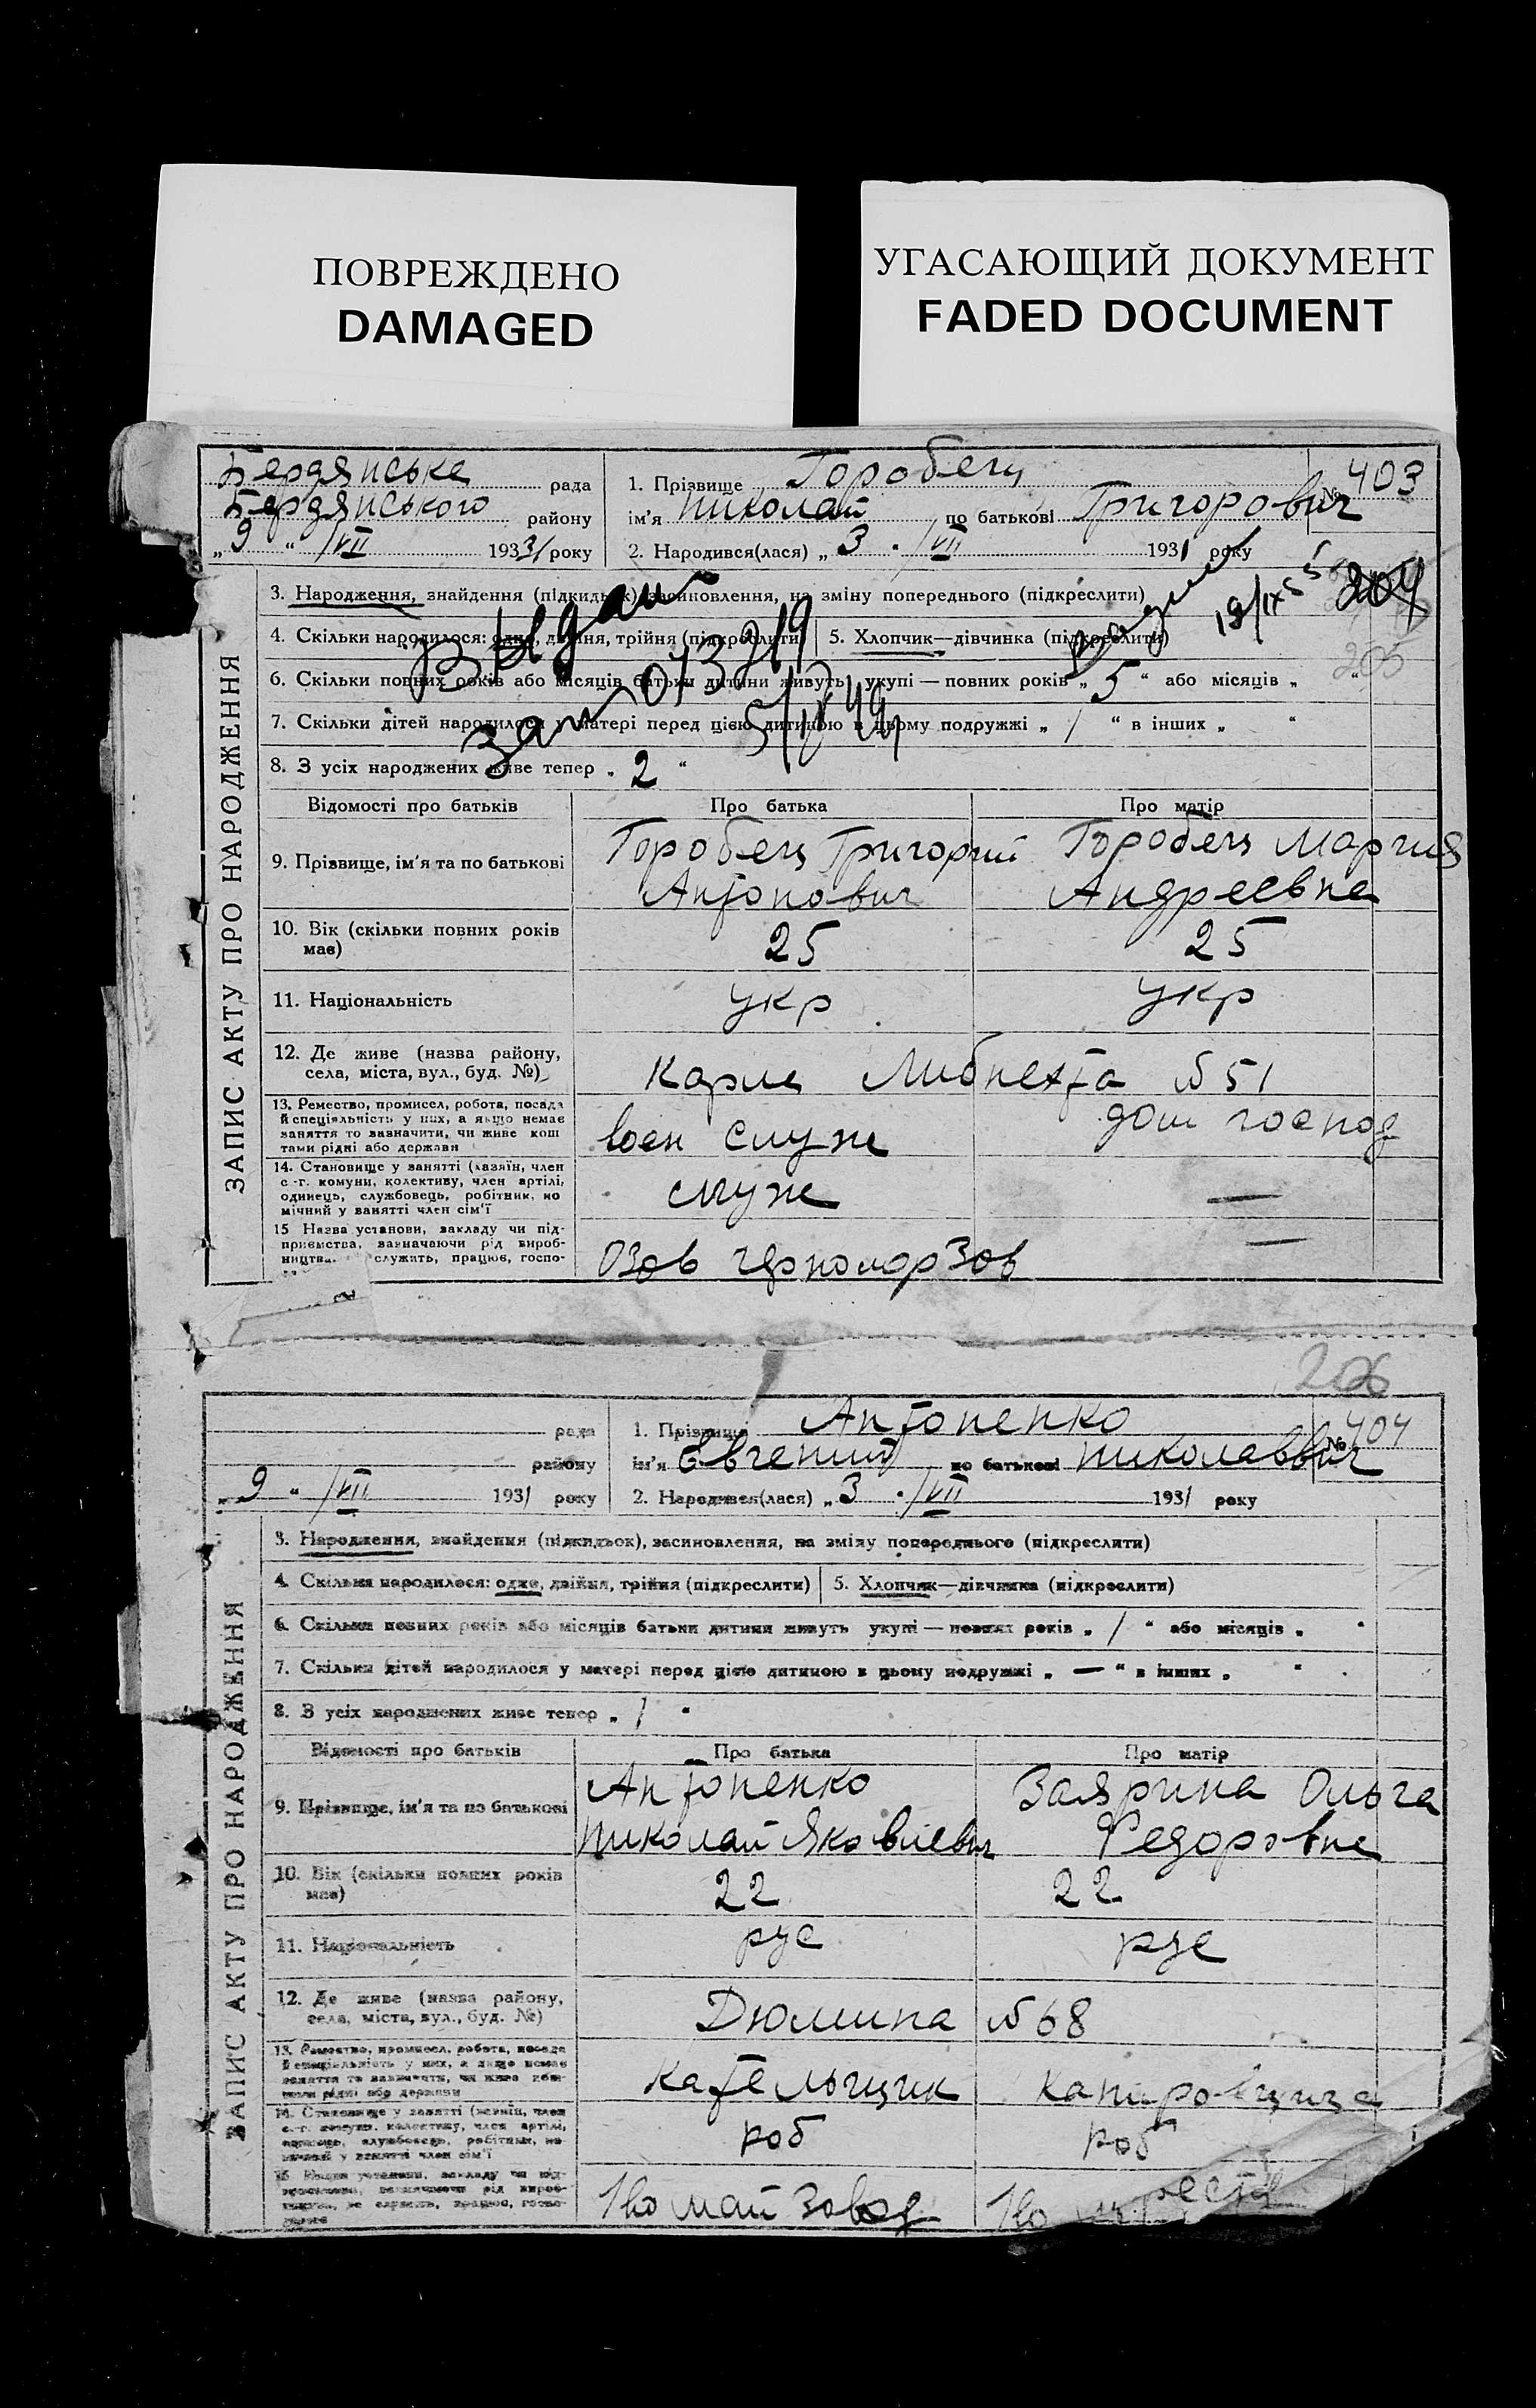 ПОВРЕЖДЕНО
DAMAGED
УГАСАЮЩИЙ ДОКУМЕНТ
FADED DOCUMENT
ЗАПИС АКТУ ПРО НАРОДЖЕННЯ
Бердянська рада
Бердянського району
„ 9 “ /VII 1931 року
1. Прізвище Горобец
№ 403
ім'я Николай по батькові Григорович
2. Народився(лася) „ 3 . /VII 1931 року
3. Народження, знайдення (підкидьок), засиновлення, на зміну попереднього (підкреслити)
18/IX 55
204
4. Скільки народилося: одне, двійня, трійня (підкреслити)
5. Хлопчик—дівчинка (підкреслити)
Выдан
013219
205
6. Скільки повних років або місяців батьки дитини живуть укупі — повних років „ 5 “ або місяців „ “
7. Скільки дітей народилося у матері перед цією дитиною в цьому подружжі „ / “ в інших „ “
8. З усіх народжених живе тепер „ 2 “
Відомості про батьків
Про батька
Про матір
9. Прізвище, ім'я та по батькові
Горобец Григорий
Антонович
Горобец Мария
Андреевна
10. Вік (скільки повних років має)
25
25
11. Національність
укр
укр
12. Де живе (назва району,
села, міста, вул., буд. №)
Карла Либнехта № 51
13. Ремество, промисел, робота, посада
й спеціяльність у них, а якщо немає
заняття то зазначити, чи живе кош
тами рідні або держави
воен служ
дом господ
14. Становище у занятті (хазяїн, член
с.-г. комуни, колективу, член артілі,
одинець, службовець, робітник, по
мічний у занятті член сім'ї
служ
—
15 Назва установи, закладу чи під-
приємства, зазначаючи рід вироб-
ництва, служить, працює, госпо-
—
206
ЗАПИС АКТУ ПРО НАРОДЖЕННЯ
рада
району
„ 9 “ /VII 1931 року
1. Прізвище Антоненко
№ 404
ім'я Евгений по батькові Николаевич
2. Народився(лася) „ 3 . /VII 1931 року
3. Народження, знайдення (підкидьок), засиновлення, на зміну попереднього (підкреслити)
4. Скільки народилося: одне, двійня, трійня (підкреслити)
5. Хлопчик—дівчинка (підкреслити)
6. Скільки повних років або місяців батьки дитини живуть укупі — повних років „ / “ або місяців „ “
7. Скільки дітей народилося у матері перед цією дитиною в цьому подружжі „ — “ в інших „ “
8. З усіх народжених живе тепер „ / “
Відомості про батьків
Про батька
Про матір
9. Прізвище, ім'я та по батькові
Антоненко
Николай Яковлевич
Заярина Ольга
Федоровна
10. Вік (скільки повних років
має)
22
22
11. Національність
рус
рус
12. Де живе (назва району,
села, міста, вул., буд. №)
Дюмина № 68
13. Ремество, промисел, робота, посада
й спеціяльність у них, а якщо немає
заняття то зазначити, чи живе кош-
тами рідні або держави
14. Становище у занятті (хазяїн, член
с.-г. комуни, колективу, член артілі,
одинець, службовець, робітник, по-
мічний у занятті член сім'ї
роб
роб
15 Назва установи, закладу чи під-
приємства, зазначаючи рід вироб-
ництва, де служить, працює, госпо-
1го май завод
1го